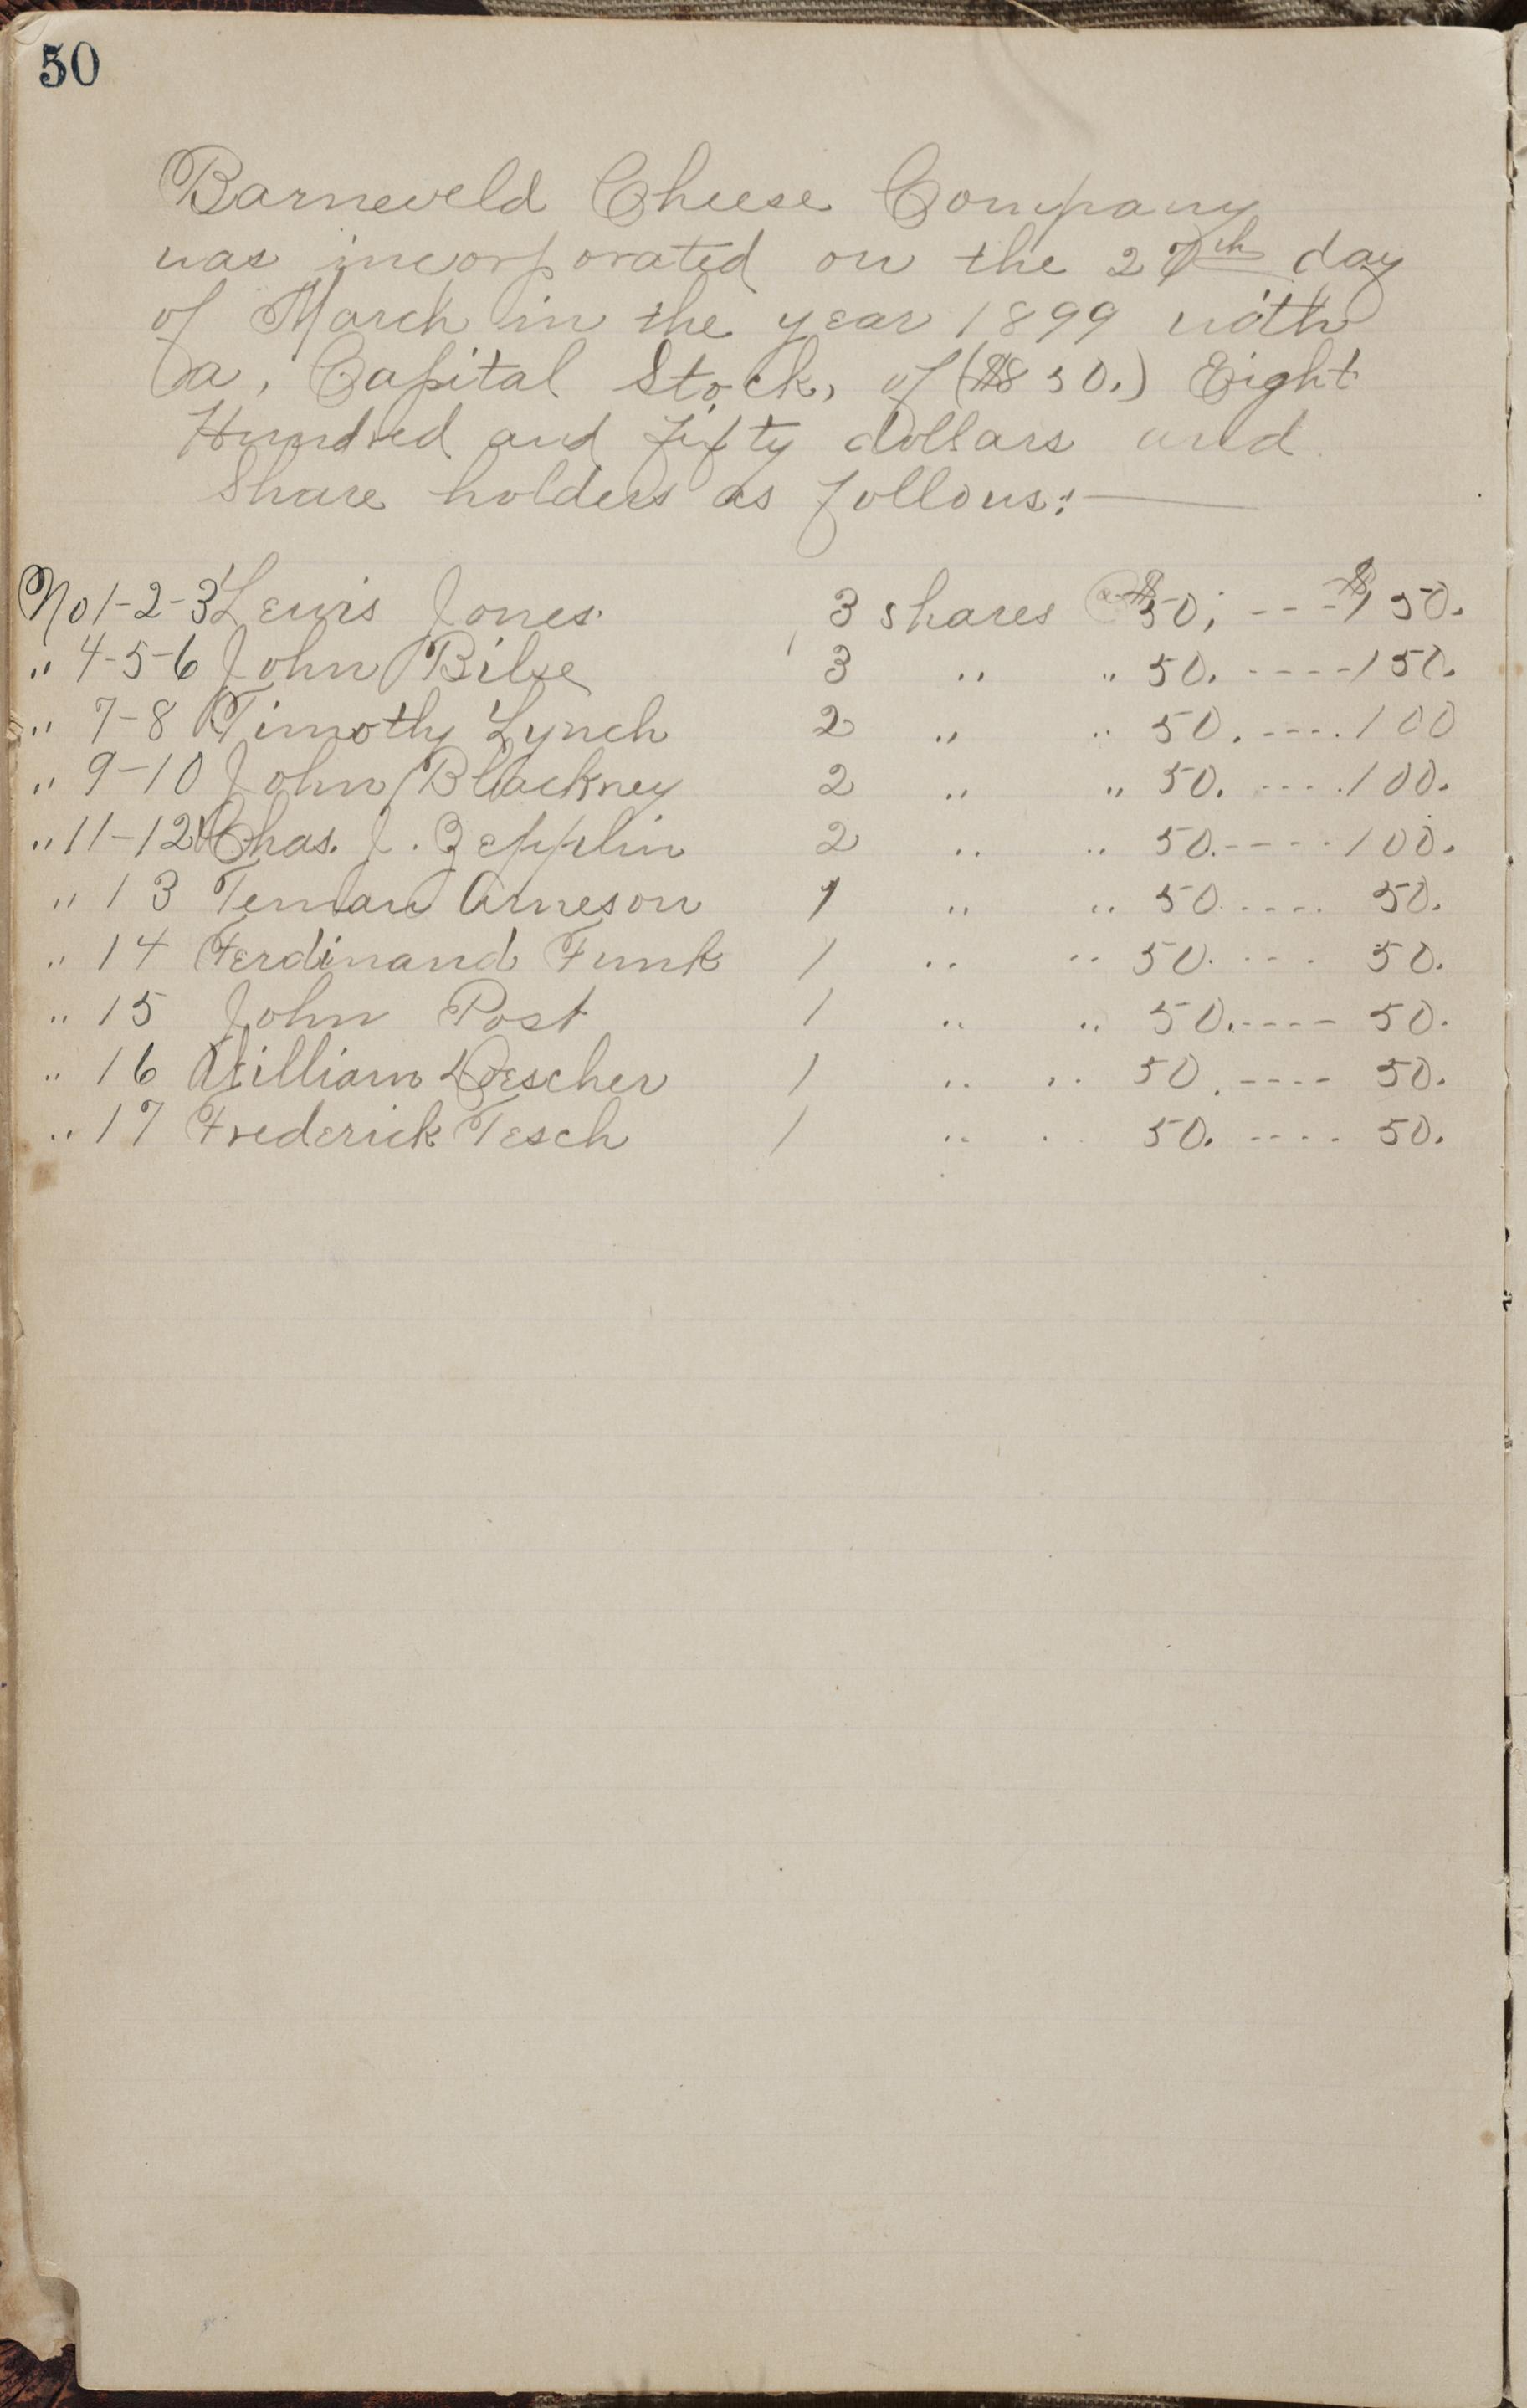 50
Barneveld Cheese Company
was incorporated on the 27th day
of March in the year 1899 with
a, Capital Stock, of ($850.) Eight
Hundred and fifty dollars and
Share holders as follows:—
No 1-2-3 Lewis Jones 3 shares @ $50; --- $150.
" 4-5-6 John Bilse 3 " " 50. ---- 150.
" 7-8 Timothy Lynch 2 " " 50. ---- 100
" 9-10 John Blackney 2 " " 50. ---- 100.
" 11-12 Chas. J. Zepplin 2 " " 50. ---- 100.
" 13 Teman Arneson 1 " " 50 ---- 50.
" 14 Ferdinand Funk 1 " " 50. --- 50.
" 15 John Post 1 " " 50. ---- 50.
" 16 William Loescher 1 " " 50. ---- 50.
" 17 Frederick Tesch 1 " " 50. ---- 50.